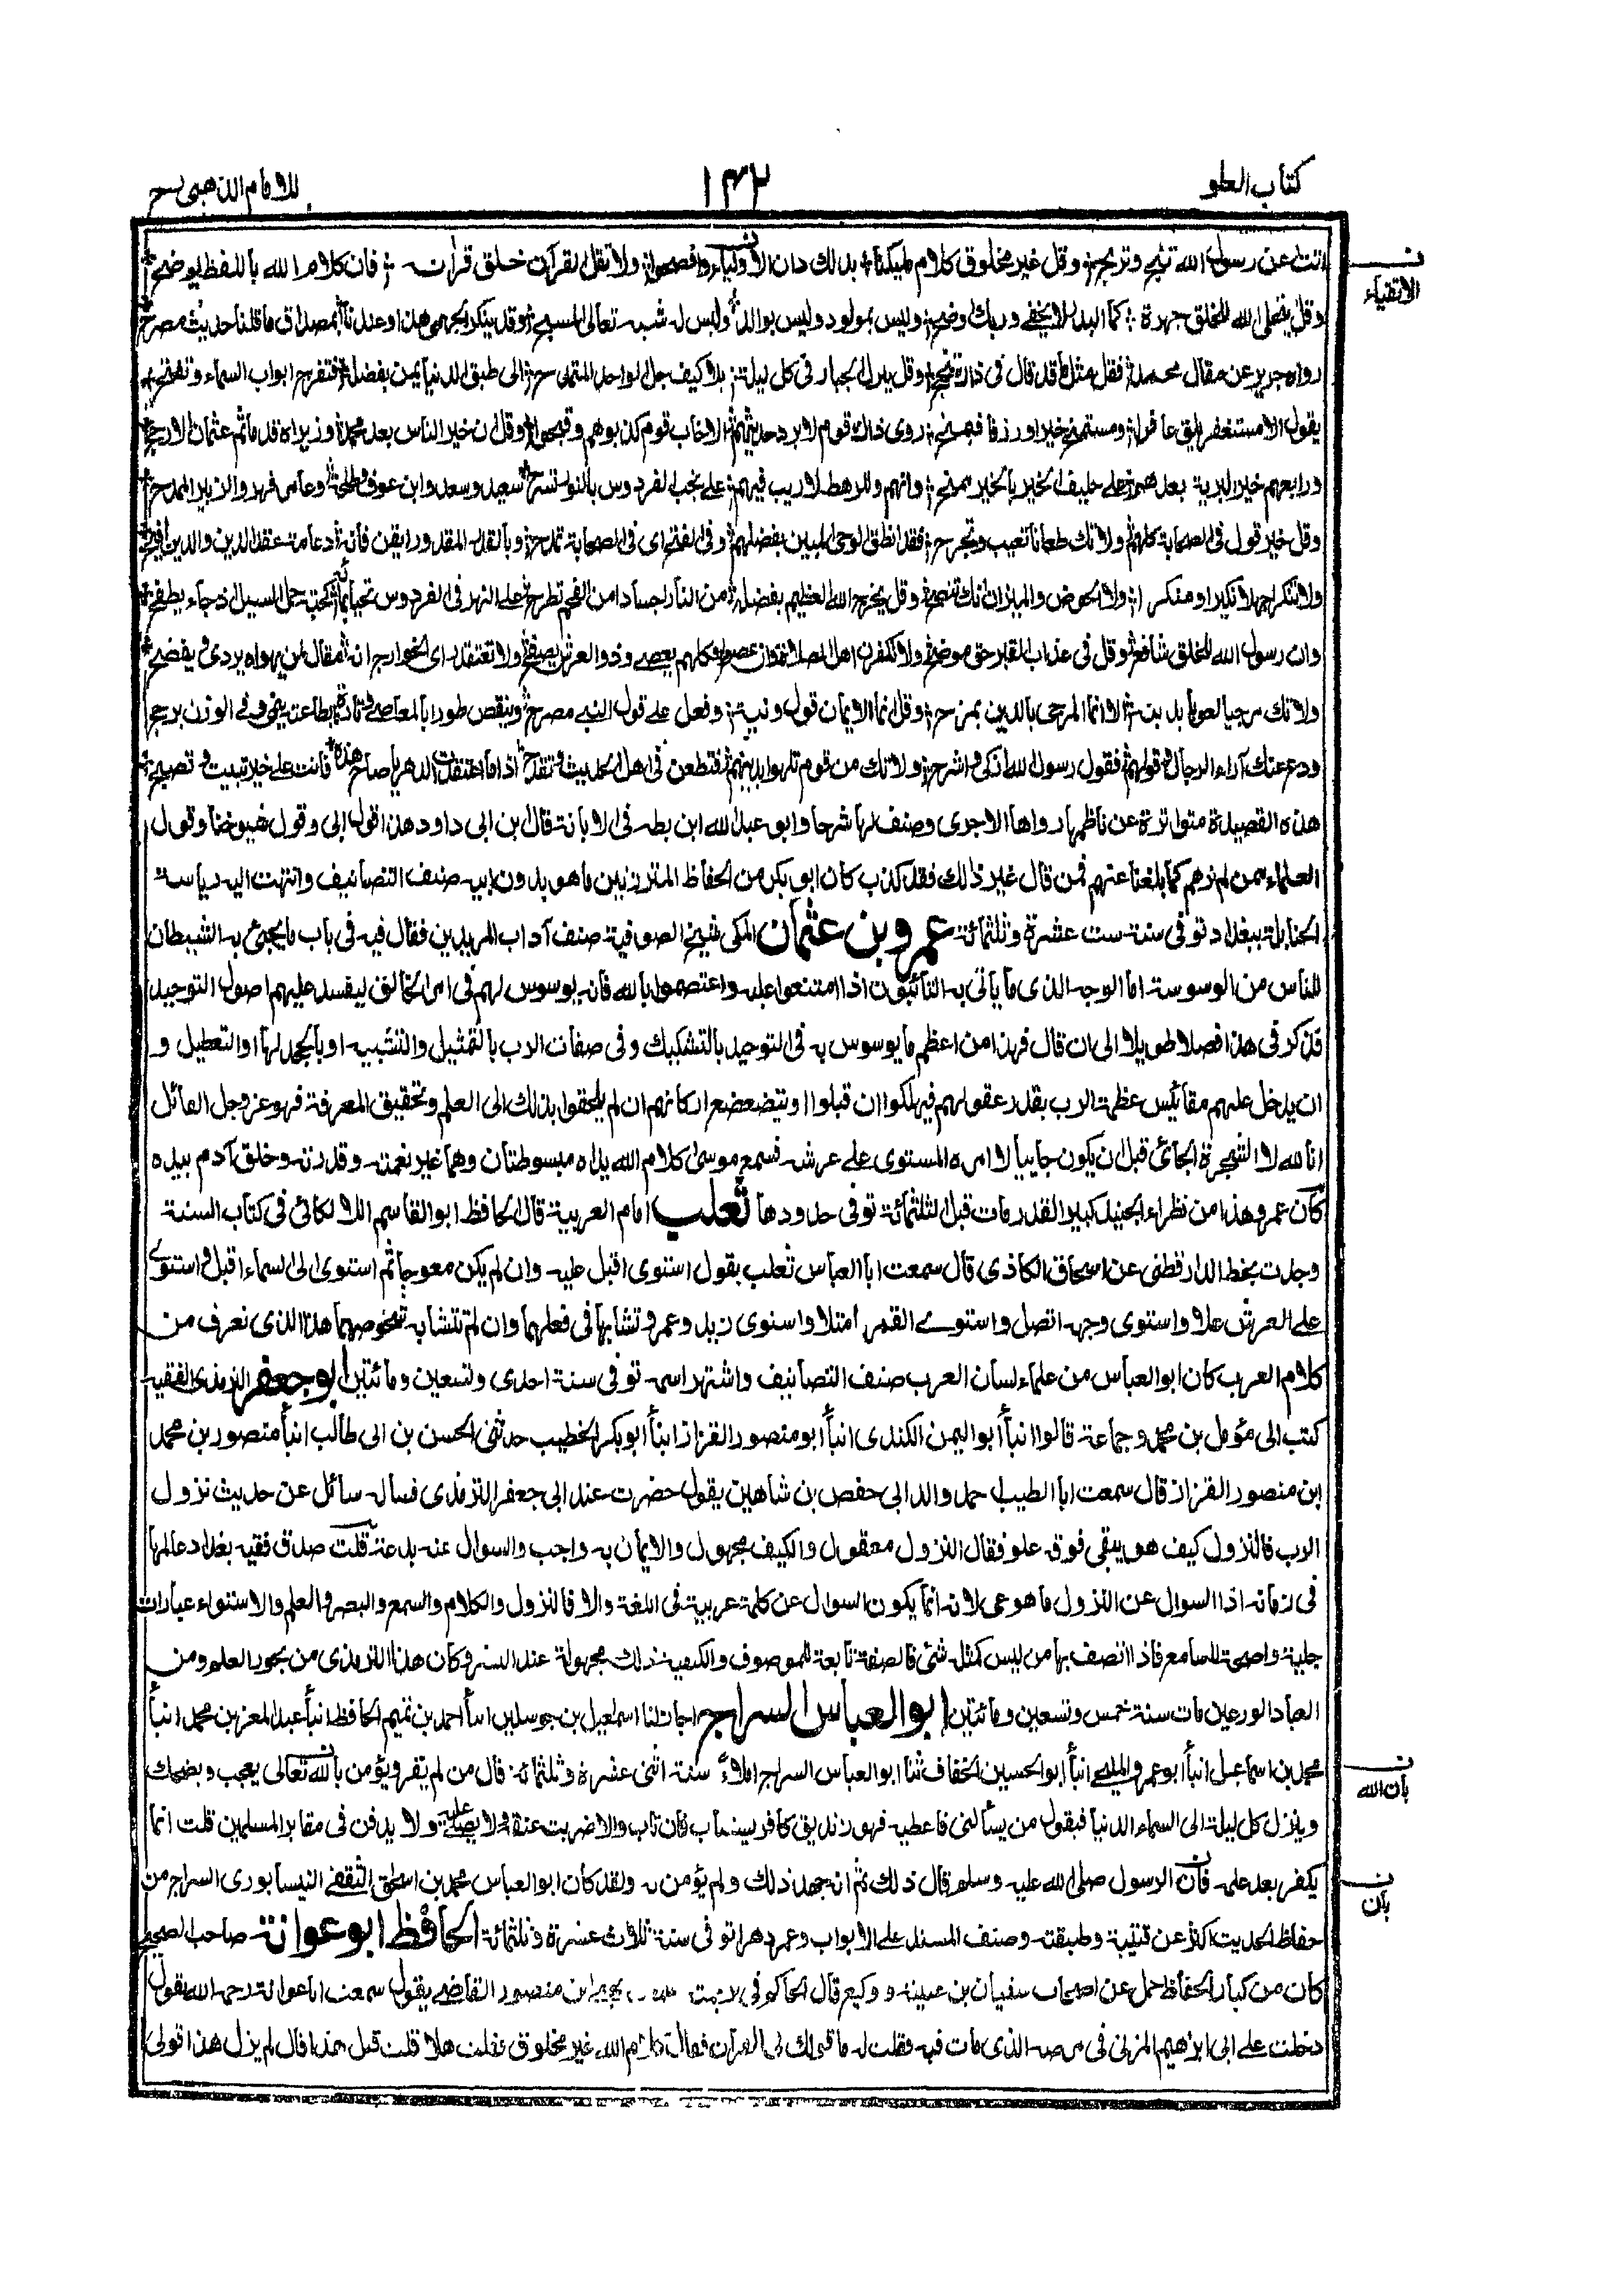 كتاب العلو ١٣٢ للامام الذهبى رح
اتت عن رسول الله تنجح وتربح ؛ وقل غير مخلوق كلام مليكنا ؛ بذلك دان الاولياء وافصحوا ؛ ولا تقل القرآن خلق قرأت ؛ فان كلام الله باللفظ يوضح ؛
وقل يتجلى الله للخلق جهرة ؛ كما البدر لا يخفى وربك اوضح ؛ وليس بمولود وليس بوالد ؛ وليس له شبه تعالى المسبح ؛ وقد ينكر الجهمى هذا وعندنا ؛ بمصداق ما قلنا حديث مصرح ؛
رواه جرير عن مقال محمد ؛ فقل مثل ما قد قال فى ذاك تنجح ؛ وقل ينزل الجبار فى كل ليلة ؛ بلا كيف جل الواحد المتمدح ؛ الى طبق الدنيا يمن بفضله ؛ فتفرج ابواب السماء وتفتح ؛
يقول الا مستغفر يلق غافرا ؛ ومستمنح خيرا ورزقا فيمنح ؛ روى ذاك قوم لا يرد حديثهم ؛ الا خاب قوم كذبوهم وقبحوا ؛ وقل ان خير الناس بعد محمد ؛ وزيراه قدما ثم عثمان الارجح ؛
ورابعهم خير البرية بعدهم ؛ على حليف الخير بالخير ممنح ؛ وانهم والرهط لا ريب فيهم ؛ على نجب الفردوس بالنور تسرح ؛ سعيد وسعد وابن عوف وطلحة ؛ وعامر فهر والزبير الممدح ؛
وقل خير قول فى الصحابة كلهم ؛ ولا تك طعانا تعيب وتجرح ؛ فقد انطق الوحى المبين بفضلهم ؛ وفى الفتح اى فى الصحابة تمدح ؛ وبالقدر المقدور ايقن فانه ؛ دعامة عقد الدين والدين افيح ؛
ولا تنكرا جهلا نكيرا ومنكرا ؛ ولا الحوض والميزان انك تنصح ؛ وقل يخرج الله العظيم بفضله ؛ من النار اجسادا من الفحم تطرح ؛ على النهر فى الفردوس تحيا بمائه ؛ كحبة حمل السيل اذ جاء يطفح ؛
وان رسول الله للخلق شافع ؛ وقل فى عذاب القبر حق موضح ؛ ولا تكفرن اهل الصلاة وان عصوا ؛ فكلهم يعصى وذو العرش يصفح ؛ ولا تعتقد راى الخوارج انه ؛ مقال لمن يهواه يردى ويفضح ؛
ولا تك مرجيا لعوبا بدينه ؛ الا انما المرجى بالدين يمزح ؛ وقل انما الايمان قول ونية ؛ وفعل على قول النبى مصرح ؛ وينقص طورا بالمعاصى وتارة ؛ بطاعته ينمى وفى الوزن يرجح
ودع عنك آراء الرجال وقولهم ؛ فقول رسول الله ازكى واشرح ؛ ولا تك من قوم تلهوا بدينهم ؛ فتطعن فى اهل الحديث وتقدح ؛ اذا ما اعتقدت الدهر يا صاح هذه ؛ فانت على خير تبيت وتصبح ؛
هذه القصيدة متواترة عن ناظمها رواها الاجرى وصنف لها شرحا وابو عبد الله ابن بطه فى الابانة قال ابن ابى داود هذا قول ابى وقول شيوخنا وقول
العلماء ممن لم نرهم كما بلغنا عنهم فمن قال غير ذلك فقد كذب كان ابو بكر من الحفاظ المبرزين ما هو بدون ابيه صنف التصانيف وانتهت اليه رياسة
الحنابلة ببغداد توفى سنة ست عشرة وثلثمائة عمرو بن عثمان المكى شيخ الصوفية صنف آداب المريدين فقال فيه فى باب ما يجئ به الشيطان
للناس من الوسوسة اما الوجه الذى ما يأتى به التائبون اذا امتنعوا عليه واعتصموا بالله فانه يوسوس لهم فى امر الخالق ليفسد عليهم اصول التوحيد
فذكر فى هذا فصلا طويلا الى ان قال فهذا من اعظم ما يوسوس به فى التوحيد بالتشكيك وفى صفات الرب بالتمثيل والتشبيه او بالجحد لها والتعطيل و
ان يدخل عليهم مقائيس عظمة الرب بقدر عقولهم فيهلكوا ان قبلوا او يتضعضع اركانهم ان لم يلحقوا بذلك الى العلم وتحقيق المعرفة فهو عز وجل القائل
انا لله لا الشجرة الجائى قبل ان يكون جاييا لا امره المستوى على عرشه فسمع موسى كلام الله يداه مبسوطتان وهما غير نعمته وقدرته وخلق آدم بيده
كان عمرو هذا من نظراء الجنيد كبير القدر مات قبل الثلثمائة توفى حدودها ثعلب امام العربية قال الحافظ ابو القاسم اللالكائى فى كتاب السنة
وجدت بخط الدارقطنى عن اسحاق الكاذى قال سمعت ابا العباس ثعلب يقول استوى اقبل عليه وان لم يكن معوجا ثم استوى الى السماء اقبل واستوى
على العرش علا واستوى وجهه اتصل واستوى القمر امتلا واستوى زيد وعمرو تشابها فى فعلهما وان لم تتشابه شخوصهما هذا الذى نعرف من
كلام العرب كان ابو العباس من علماء لسان العرب صنف التصانيف واشتهر اسمه توفى سنة احدى وتسعين ومائتين ابو جعفر الترمذى الفقيه
كتب الى مؤمل بن محمد وجماعة قالوا انبأ ابو اليمن الكندى انبأ ابو منصور القزاز انبأ ابو بكر الخطيب حدثنى الحسن بن ابى طالب انبأ منصور بن محمد
ابن منصور القزاز قال سمعت ابا الطيب احمد والد ابى حفص بن شاهين يقول حضرت عند ابى جعفر الترمذى فساله سائل عن حديث نزول
الرب فالنزول كيف هو يبقى فوقه علو فقال النزول معقول والكيف مجهول والايمان به واجب والسوال عنه بدعة قلت صدق فقيه بغداد عالمها
فى زمانه اذا السوال عن النزول ما هو عى لانه انما يكون السوال عن كلمة عربية فى اللغة والا فالنزول والكلام والسمع والبصر والعلم والاستواء عبارات
جلية واضحة للسامع فاذا اتصف بها من ليس كمثله شئ فالصفة تابعة للموصوف والكيفية ذلك مجهولة عند البشر وكان هذا الترمذى من بحور العلم ومن
العباد الورعين مات سنة خمس وتسعين ومائتين ابو العباس السراج اجاز لنا اسمعيل بن جوسلين انبأ احمد بن تميم الحافظ انبأ عبد المعز بن محمد انبأ
محمد بن اسماعيل انبأ ابو عمرو المليحى انبأ ابو الحسين الخفاف ثنا ابو العباس السراج املاءً سنة اثنى عشرة وثلثمائة قال من لم يقر ويؤمن بالله تعالى يعجب ويضحك
وينزل كل ليلة الى السماء الدنيا فيقول من يسألنى فاعطيه فهو زنديق كافر يستتاب فان تاب والا ضربت عنقه ولا يصلى عليه ولا يدفن فى مقابر المسلمين قلت انما
يكفر بعد علمه فان الرسول صلى الله عليه وسلم قال ذلك ثم انه جحد ذلك ولم يؤمن به ولقد كان ابو العباس محمد بن اسحق الثقفى النيسابورى السراج من
حفاظ الحديث اكثر عن قتيبة وطبقته وصنف المسند على الابواب وعمر دهرا توفى سنة ثلاث عشرة وثلثمائة الحافظ ابو عوانة صاحب الصحيح
كان من كبار الحفاظ حمل عن اصحاب سفيان بن عيينة ووكيع قال الحاكم فى ابن منصور القاضى يقول سمعت ابا عوانة رحمه الله يقول
دخلت على ابى ابراهيم المزنى فى مرضه الذى مات فيه فقلت له ما قولك فى القرآن فقال كلام الله غير مخلوق فقلت هلا قلت قبل هذا قال لم يزل هذا قولى
ن
الاتقياء
ن
بان الله
ن
بان